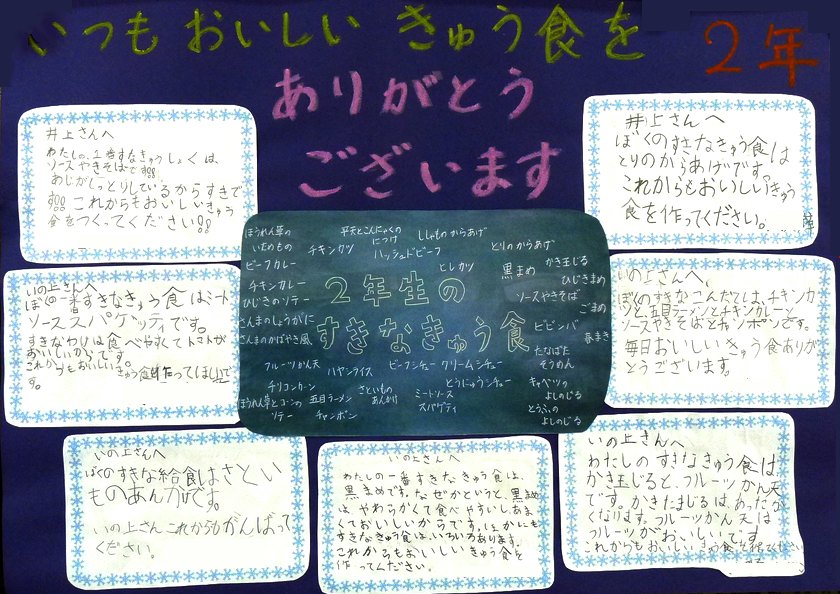 いつもおいしいきゅう食を
2年
ありがとう
ございます
井上さんへ
わたしの、1番すなきゅうしょくは
ソースやきそばです!!
あじがしっとりしているからすきで
す!!これからもおいしいきゅう
食をつくってください!!
井上さんへ
ぼくのすきなきゅう食は
とりのからあげです。
これからもおいしいきゅう
食を作ってください。
いの上さんへ
ぼくの一番すきなきゅう食はミート
ソーススパゲッティです。
すきなわけは食べやすくてトマトが
おいしいからです。
これからもおいしいきゅう食を作ってほしいで
す。
ほうれん草の
いそのもの
ビーフカレー
チキンカレー
ひじきのソテー
さんまのしょうがに
さんまのかばやき風
フルーツかん天
チリコンカーン
ほうれん草とコーンの
ソテー
平天とこんにゃくの
につけ
チキンカツ
ハッシュドビーフ
ししゃものからあげ
ヒレカツ
とりのからあげ
黒まめ
かき玉じる
ひじきまめ
ソースやきそば
ごまめ
ビビンバ
春まき
たなばた
そうめん
キャベツの
よしのじる
とうふの
よしのじる
2年生の
すきなきゅう食
ハヤシライス
ビーフシチュー
クリームシチュー
とうにゅうシチュー
五目ラーメン
チャンポン
さといもの
あんかけ
ミートソース
スパゲティ
いの上さんへ
ぼくのすきなこんだては、チキンカ
ツと、五目ラーメンとチキンカレーと
ソースやきそばとチャンポンです。
毎日おいしいきゅう食ありが
とうございます。
いの上さんへ
ぼくのすきな給食はさとい
ものあんかけです。
いの上さんこれからもがんばって
ください。
いの上さんへ
わたしの一番すきなきゅう食は、
黒まめです。なぜかというと、黒まめ
は、やわらかくて食べやすいしあま
くておいしいからです。ほかにも
すきなきゅう食は、いろいろあります。
これからもおいしいきゅう食を
作ってください。
いの上さんへ
わたしのすきなきゅう食は、
かき玉じると、フルーツかん天
です。かきたまじるは、あったか
くなります。フルーツかん天は
フルーツがおいしいです。
これからもおいしいきゅう食を作ってください